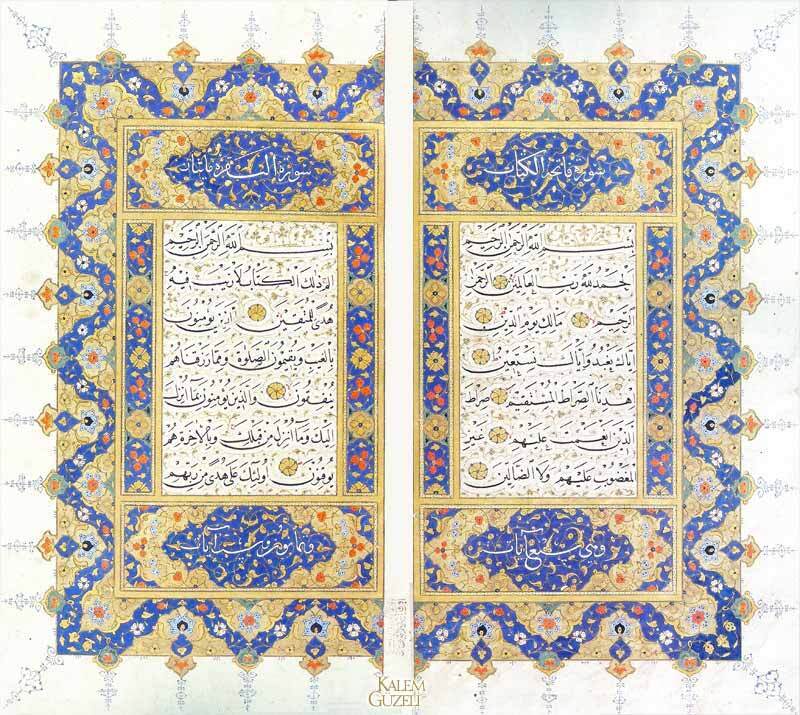 سورة فاتحة الكتاب
بسم الله الرحمن الرحيم
الحمد لله رب العالمين الرحمن
الرحيم مالك يوم الدين
اياك نعبد واياك نستعين
اهدنا الصراط المستقيم صراط
الذين انعمت عليهم غير
المغضوب عليهم ولا الضالين
وهى سبع آيات
سورة البقرة مايتان
بسم الله الرحمن الرحيم
الم ذلك الكتاب لا ريب فيه
هدى للمتقين الذين يؤمنون
بالغيب ويقيمون الصلوة ومما رزقناهم
ينفقون والذين يؤمنون بما انزل
اليك وما انزل من قبلك وبالآخرة هم
يوقنون اولئك على هدى من ربهم
وثمانون وست آيات
KALEM
GÜZELİ